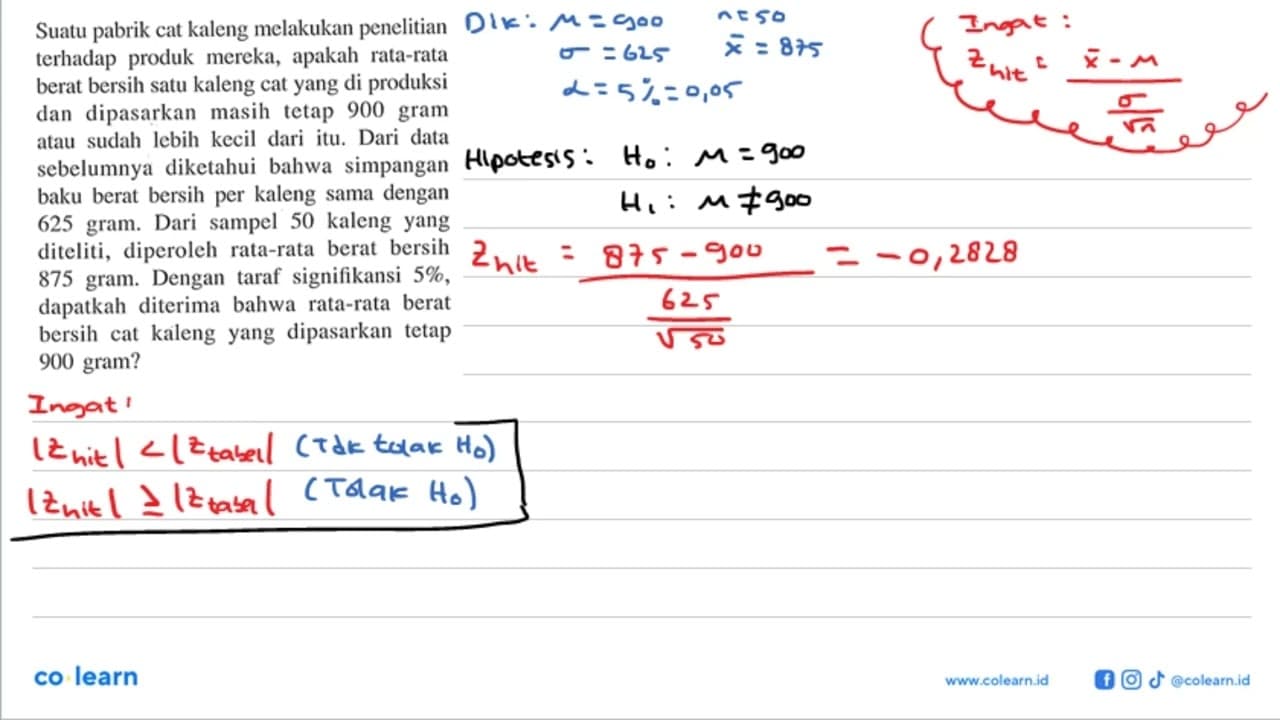 Suatu pabrik cat kaleng melakukan penelitian
terhadap produk mereka, apakah rata-rata
berat bersih satu kaleng cat yang di produksi
dan dipasarkan masih tetap 900 gram
atau sudah lebih kecil dari itu. Dari data
sebelumnya diketahui bahwa simpangan
baku berat bersih per kaleng sama dengan
625 gram. Dari sampel 50 kaleng yang
diteliti, diperoleh rata-rata berat bersih
875 gram. Dengan taraf signifikansi 5%,
dapatkah diterima bahwa rata-rata berat
bersih cat kaleng yang dipasarkan tetap
900 gram?
Dik: μ = 900 n = 50
σ = 625 x̄ = 875
α = 5% = 0,05
Ingat:
Z hit = x̄ - μ
σ
√n
Hipotesis: H₀: μ = 900
H₁: μ ≠ 900
Z hit = 875 - 900 = -0,2828
625
√50
Ingat!
|Z hit| < |Z tabel| (Tdk tolak H₀)
|Z hit| ≥ |Z tabel| (Tolak H₀)
co learn
www.colearn.id @colearn.id